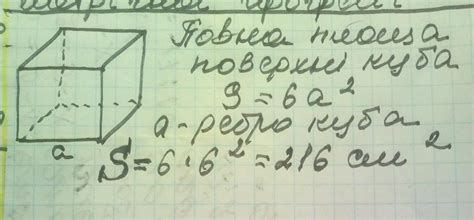 Повна площа
поверхні куба
S = 6a²
a - ребро куба
a
S = 6 · 6² = 216 см²